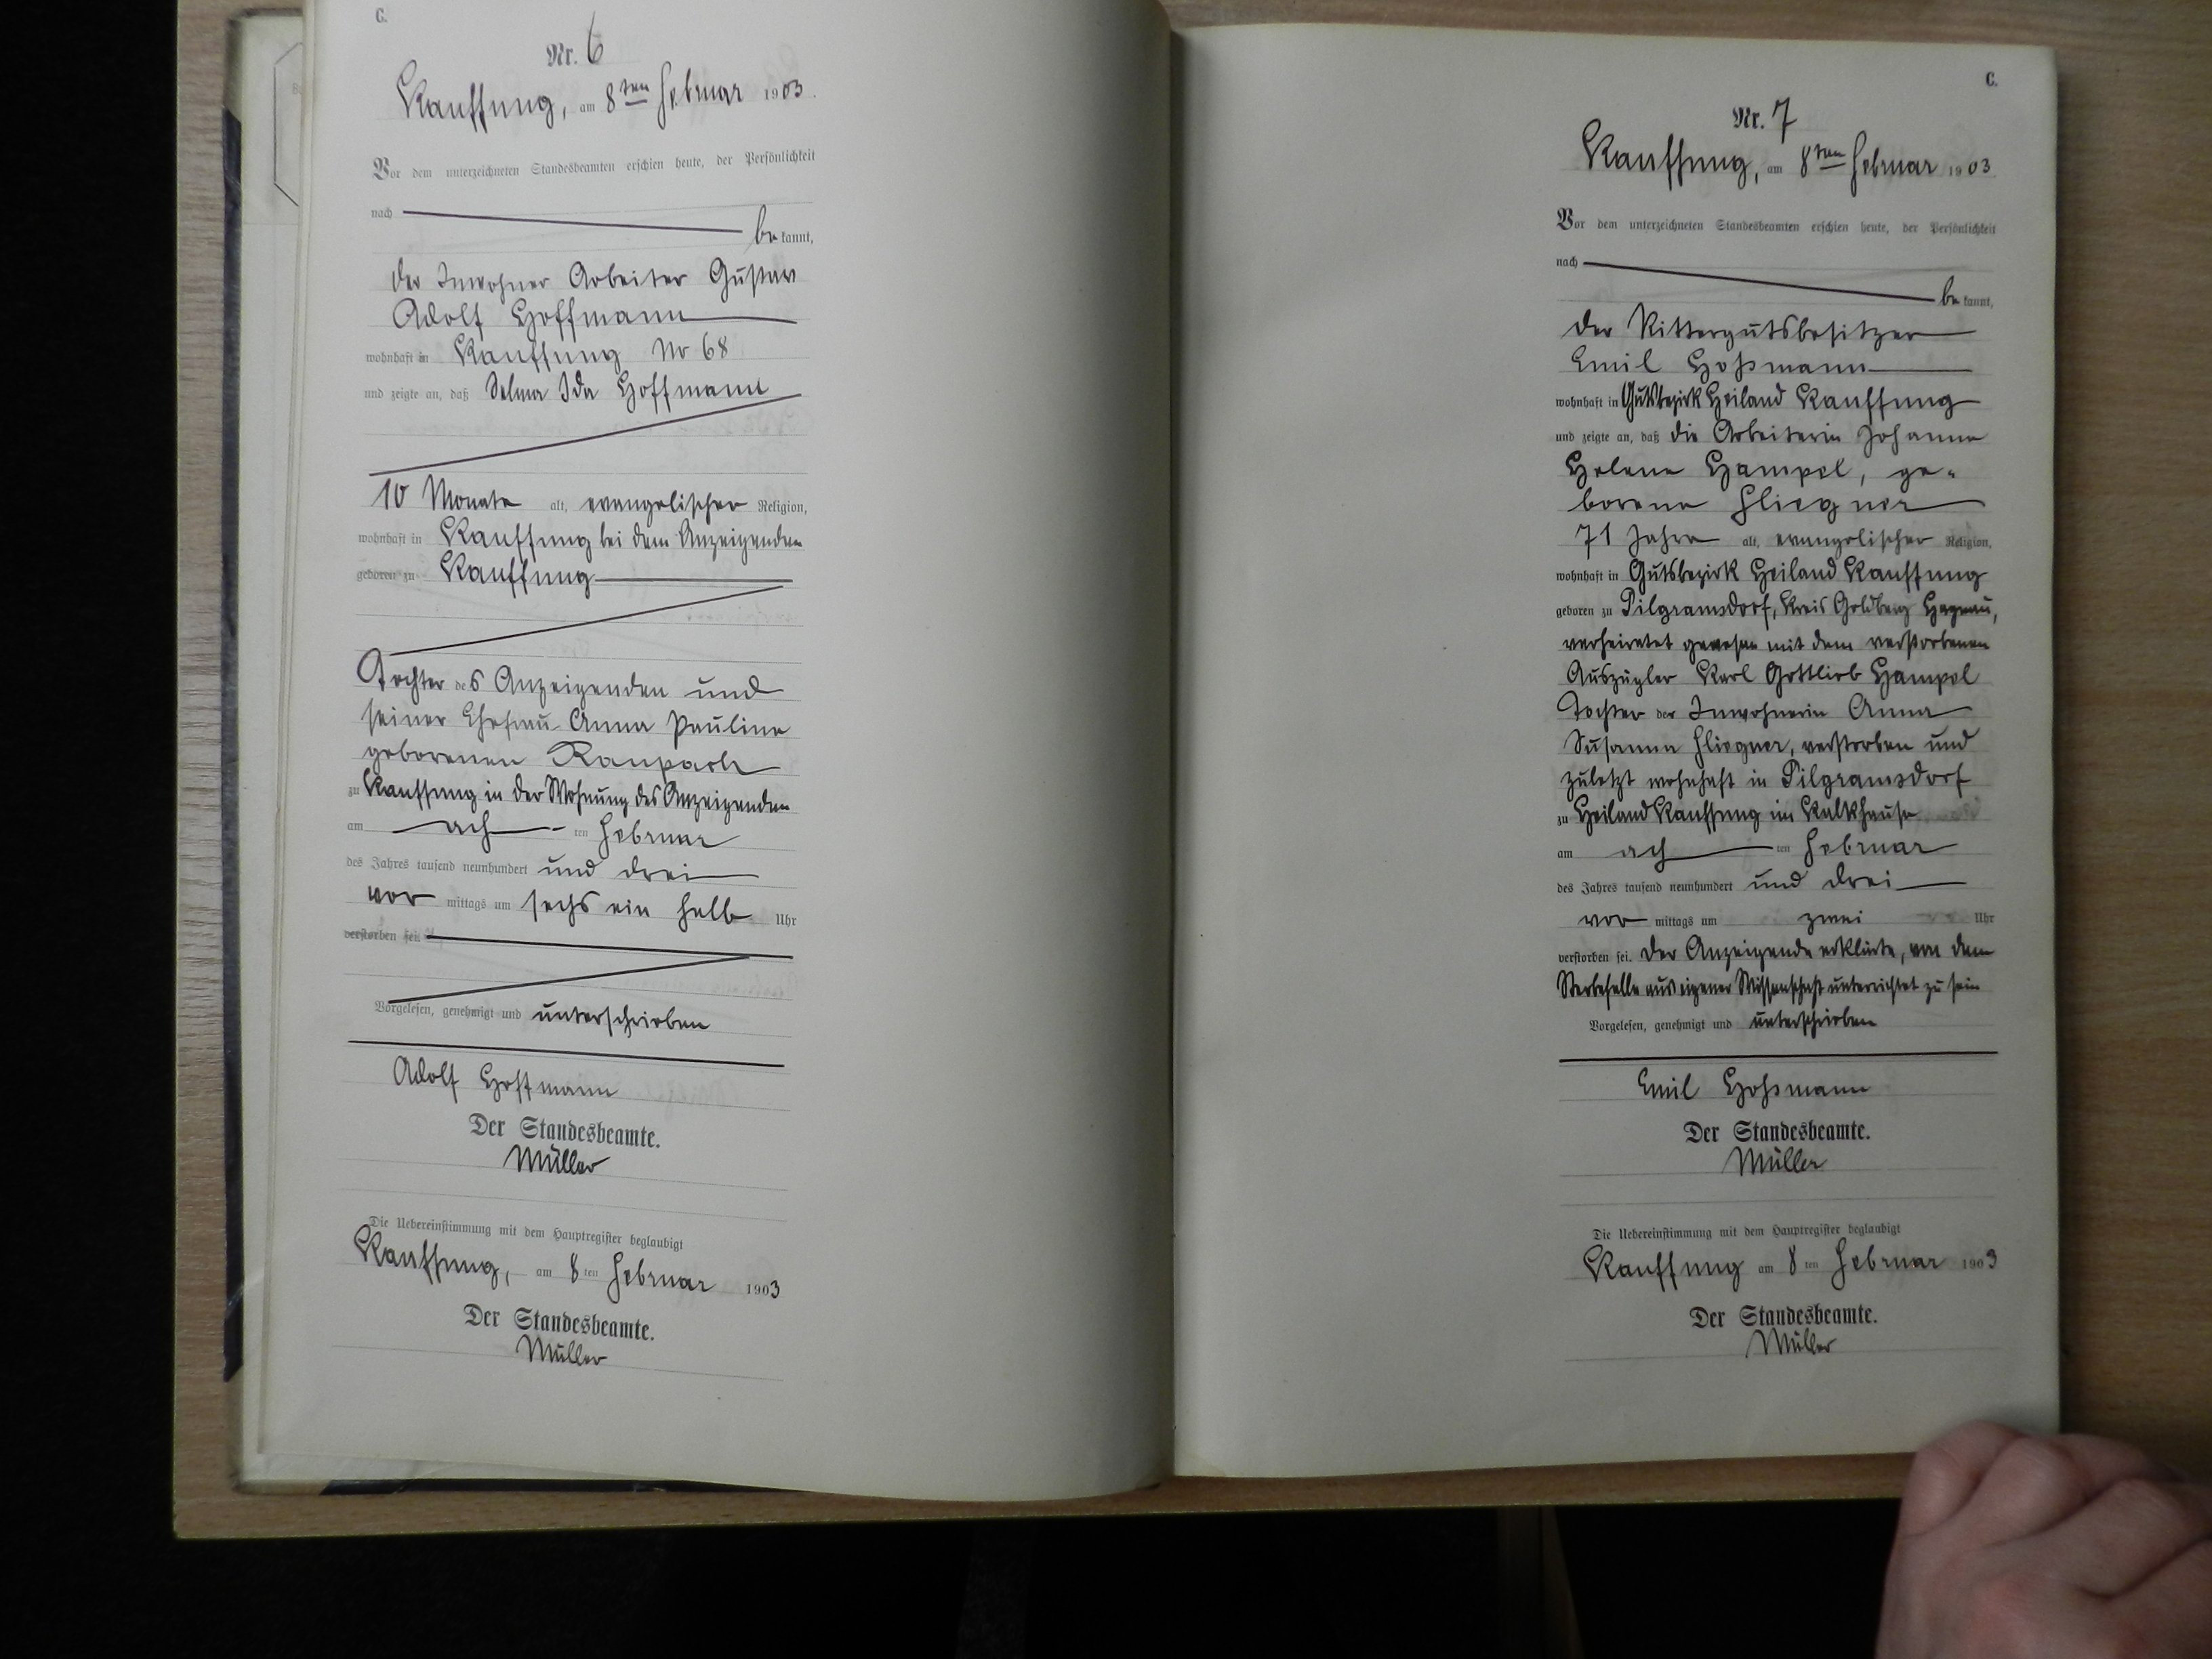 C.
Nr. 6
Kauffung, am 8ten Februar 1903.
Vor dem unterzeichneten Standesbeamten erschien heute, der Persönlichkeit
nach
be kannt,
der Inwohner Arbeiter Gustav
Adolf Hoffmann
wohnhaft in Kauffung No 68
und zeigte an, daß Selma Ida Hoffmann
10 Monate alt, evangelischer Religion,
wohnhaft in Kauffung bei dem Anzeigenden
geboren zu Kauffung
Tochter des Anzeigenden und
seiner Ehefrau Anna Pauline
geborenen Raupach
zu Kauffung in der Wohnung des Anzeigenden
am ach ten Februar
des Jahres tausend neunhundert und drei
vor mittags um sechs ein halb Uhr
verstorben sei.
Vorgelesen, genehmigt und unterschrieben
Adolf Hoffmann
Der Standesbeamte.
Müller
Die Uebereinstimmung mit dem Hauptregister beglaubigt
Kauffung, am 8 ten Februar 1903
Der Standesbeamte.
Müller
C.
Nr. 7
Kauffung, am 8ten Februar 1903
Vor dem unterzeichneten Standesbeamten erschien heute, der Persönlichkeit
nach
be kannt,
der Rittergutsbesitzer
Emil Hoßmann
wohnhaft in Gutsbezirk Heiland Kauffung
und zeigte an, daß die Arbeiterin Johanne
Helene Hampel, ge-
borene Fliegner
71 Jahre alt, evangelischer Religion,
wohnhaft in Gutsbezirk Heiland Kauffung
geboren zu Pilgramsdorf, Kreis Goldberg Hagnau,
verheiratet gewesen mit dem verstorbenen
Auszügler Karl Gottlieb Hampel
Tochter der Inwohnerin Anna
Susanna Fliegner, verstorben und
zuletzt wohnhaft in Pilgramsdorf
zu Heiland Kauffung im Kalkhause
am ach ten Februar
des Jahres tausend neunhundert und drei
vor mittags um zwei Uhr
verstorben sei. Der Anzeigende erklärte, von dem
Sterbefalle aus eigener Wissenschaft unterrichtet zu sein
Vorgelesen, genehmigt und unterschrieben
Emil Hoßmann
Der Standesbeamte.
Müller
Die Uebereinstimmung mit dem Hauptregister beglaubigt
Kauffung am 8 ten Februar 1903
Der Standesbeamte.
Müller